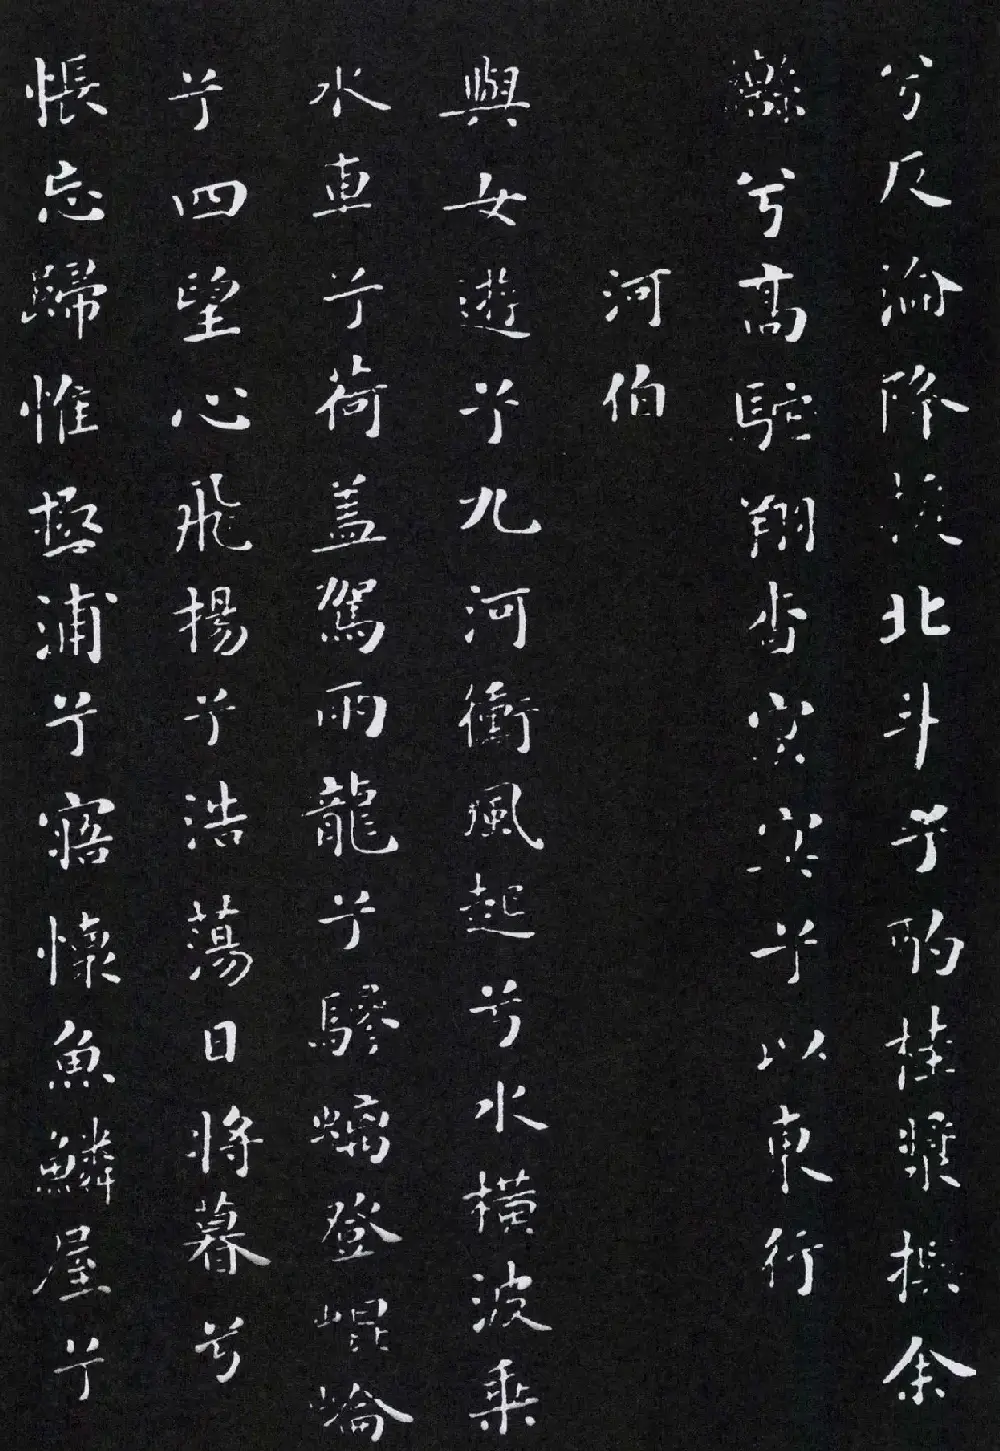 兮反淪降援北斗兮酌桂漿撰余
轡兮高駝翔杳冥冥兮以東行
河伯
與女遊兮九河衝風起兮水橫波乘
水車兮荷蓋駕兩龍兮驂螭登崐崘
兮四望心飛揚兮浩蕩日將暮兮
悵忘歸惟極浦兮寤懷魚鱗屋兮